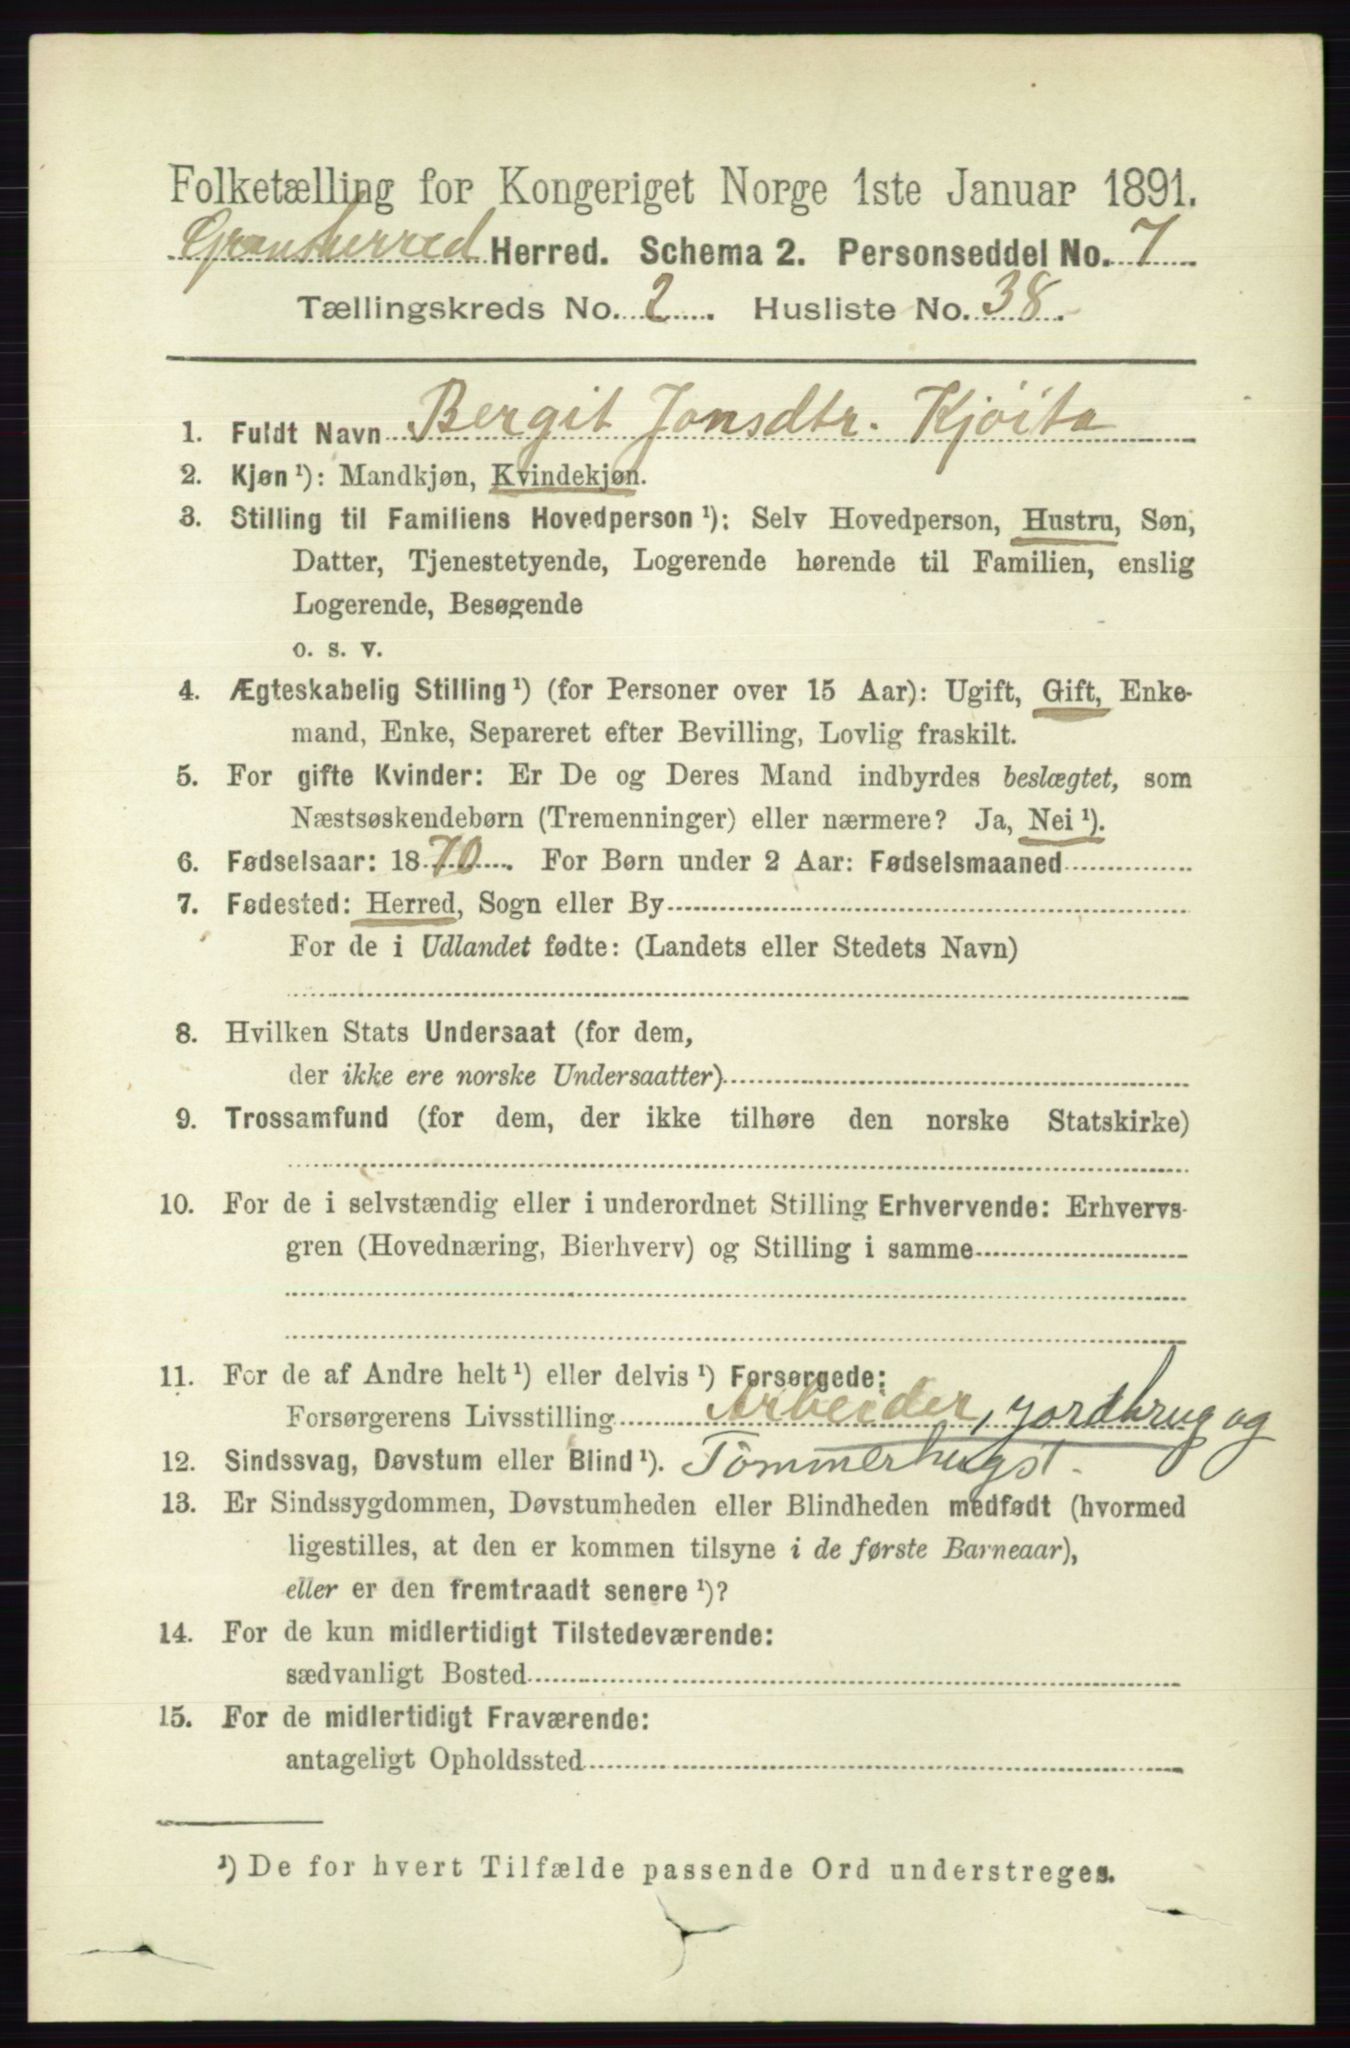 Folketælling for Kongeriget Norge 1ste Januar 1891.
Gransherred Herred. Schema 2. Personseddel No. 7
Tællingskreds No. 2. Husliste No. 38.
1. Fuldt Navn Bergit Jonsdtr. Kjöita
2. Kjøn ¹): Mandkjøn, Kvindekjøn.
3. Stilling til Familiens Hovedperson ¹): Selv Hovedperson, Hustru, Søn,
Datter, Tjenestetyende, Logerende hørende til Familien, enslig
Logerende, Besøgende
o. s. v.
4. Ægteskabelig Stilling ¹) (for Personer over 15 Aar): Ugift, Gift, Enke-
mand, Enke, Separeret efter Bevilling, Lovlig fraskilt.
5. For gifte Kvinder: Er De og Deres Mand indbyrdes beslægtet, som
Næstsøskendebørn (Tremenninger) eller nærmere? Ja, Nei ¹).
6. Fødselsaar: 1870. For Børn under 2 Aar: Fødselsmaaned
7. Fødested: Herred, Sogn eller By
For de i Udlandet fødte: (Landets eller Stedets Navn)
8. Hvilken Stats Undersaat (for dem,
der ikke ere norske Undersaatter)
9. Trossamfund (for dem, der ikke tilhøre den norske Statskirke)
10. For de i selvstændig eller i underordnet Stilling Erhvervende: Erhvervs-
gren (Hovednæring, Bierhverv) og Stilling i samme
11. For de af Andre helt ¹) eller delvis ¹) Forsørgede:
Forsørgerens Livsstilling Arbeider, jordbrug og
12. Sindssvag, Døvstum eller Blind ¹). Tömmerhugst.
13. Er Sindssygdommen, Døvstumheden eller Blindheden medfødt (hvormed
ligestilles, at den er kommen tilsyne i de første Barneaar),
eller er den fremtraadt senere ¹)?
14. For de kun midlertidigt Tilstedeværende:
sædvanligt Bosted
15. For de midlertidigt Fraværende:
antageligt Opholdssted
¹) De for hvert Tilfælde passende Ord understreges.